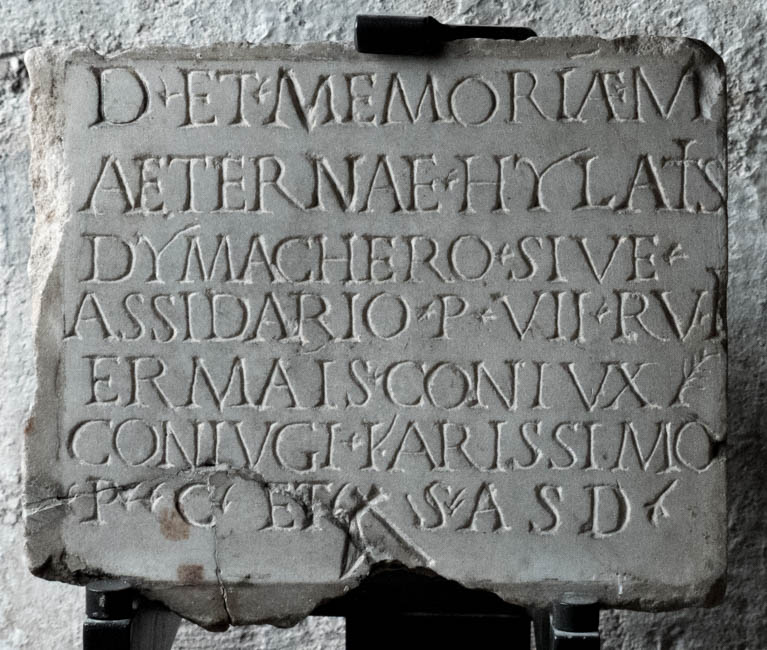 D ET MEMORIAE M
AETERNAE HYLATIS
DYMACHERO SIVE
ASSIDARIO P VII RV I
ERMAIS CONIVX
CONIVGI KARISSIMO
P C ET S AS D